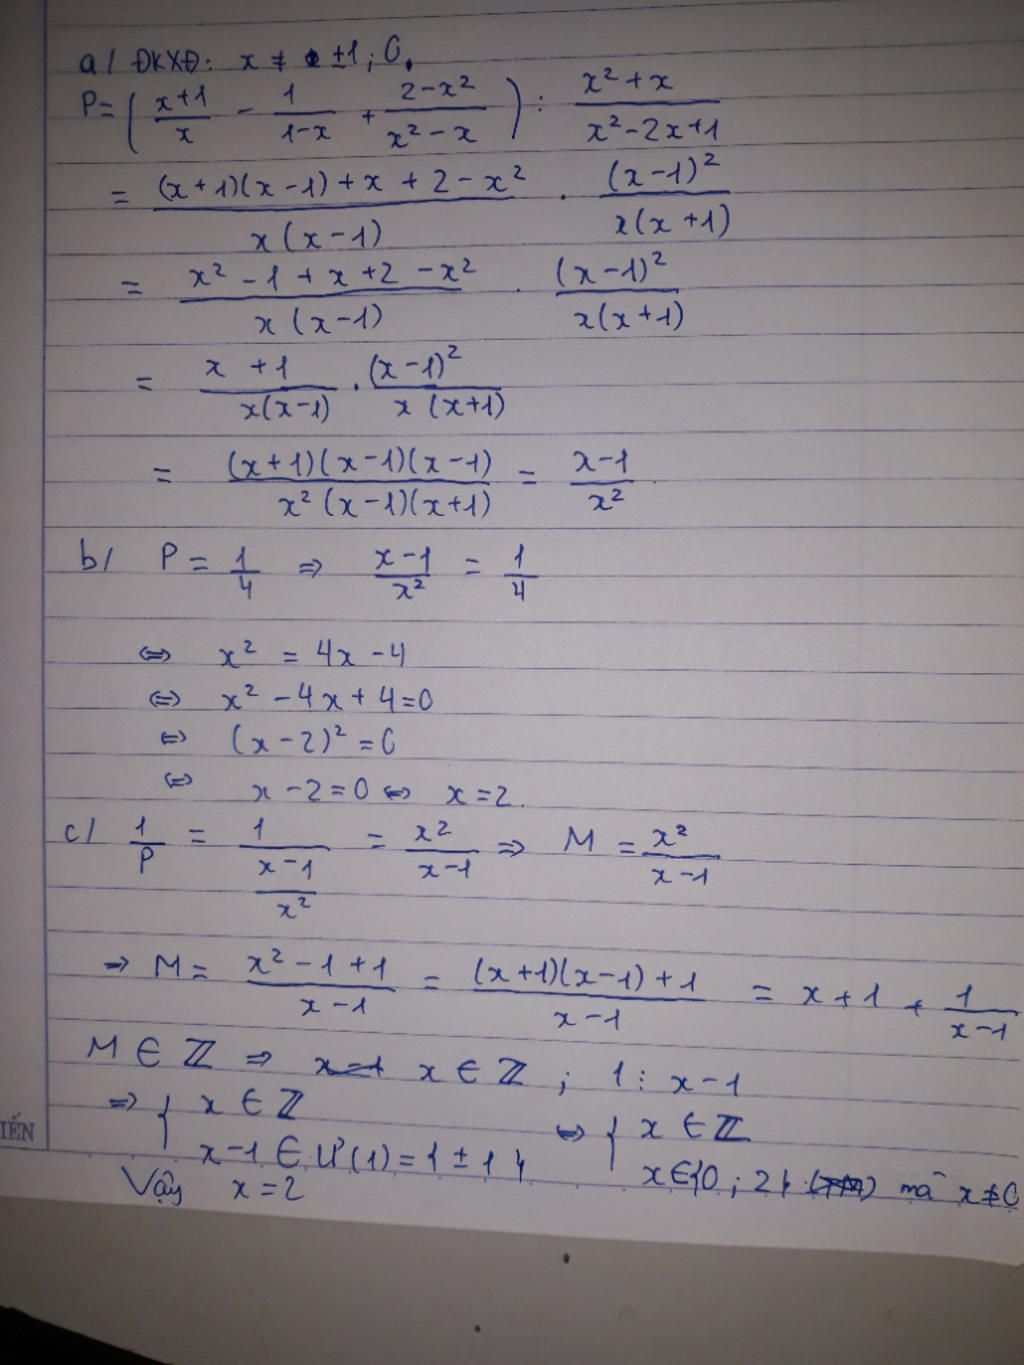 a/ ĐKXĐ: x ≠ ±1; 0.
P = ( (x+1)/x - 1/(1-x) + (2-x²)/(x²-x) ) : (x²+x)/(x²-2x+1)
= ((x+1)(x-1)+x+2-x²)/(x(x-1)) . (x-1)²/(x(x+1))
= (x²-1+x+2-x²)/(x(x-1)) . (x-1)²/(x(x+1))
= (x+1)/(x(x-1)) . (x-1)²/(x(x+1))
= ((x+1)(x-1)(x-1))/(x²(x-1)(x+1)) = (x-1)/x²
b/ P = 1/4 ⇒ (x-1)/x² = 1/4
⇔ x² = 4x-4
⇔ x²-4x+4=0
⇔ (x-2)²=0
⇔ x-2=0 ⇔ x=2.
c/ 1/P = 1/((x-1)/x²) = x²/(x-1) ⇒ M = x²/(x-1)
⇒ M = (x²-1+1)/(x-1) = ((x+1)(x-1)+1)/(x-1) = x+1+1/(x-1)
M ∈ ℤ ⇒ x ∈ ℤ ; 1 ⋮ x-1
⇒ { x ∈ ℤ ⇔ { x ∈ ℤ
x-1 ∈ Ư(1) = {±1} x ∈ {0; 2} mà x ≠ 0
Vậy x = 2
IẾN